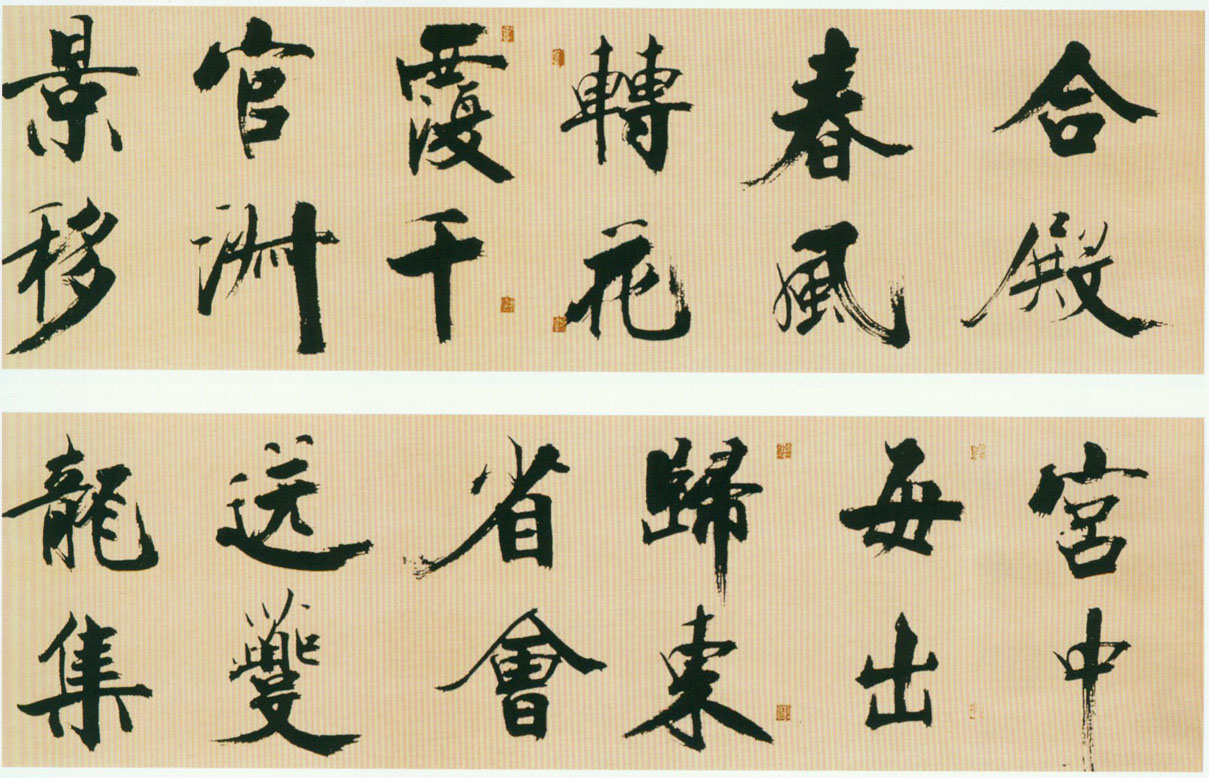 合殿
春風
轉花
覆千
官淑
景移
宮中
每出
歸東
省會
送夔
龍集